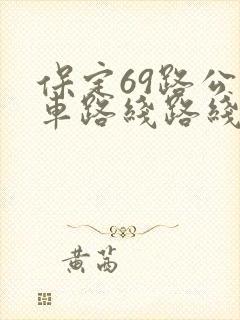 保定69路公
车路线路线
黄茜